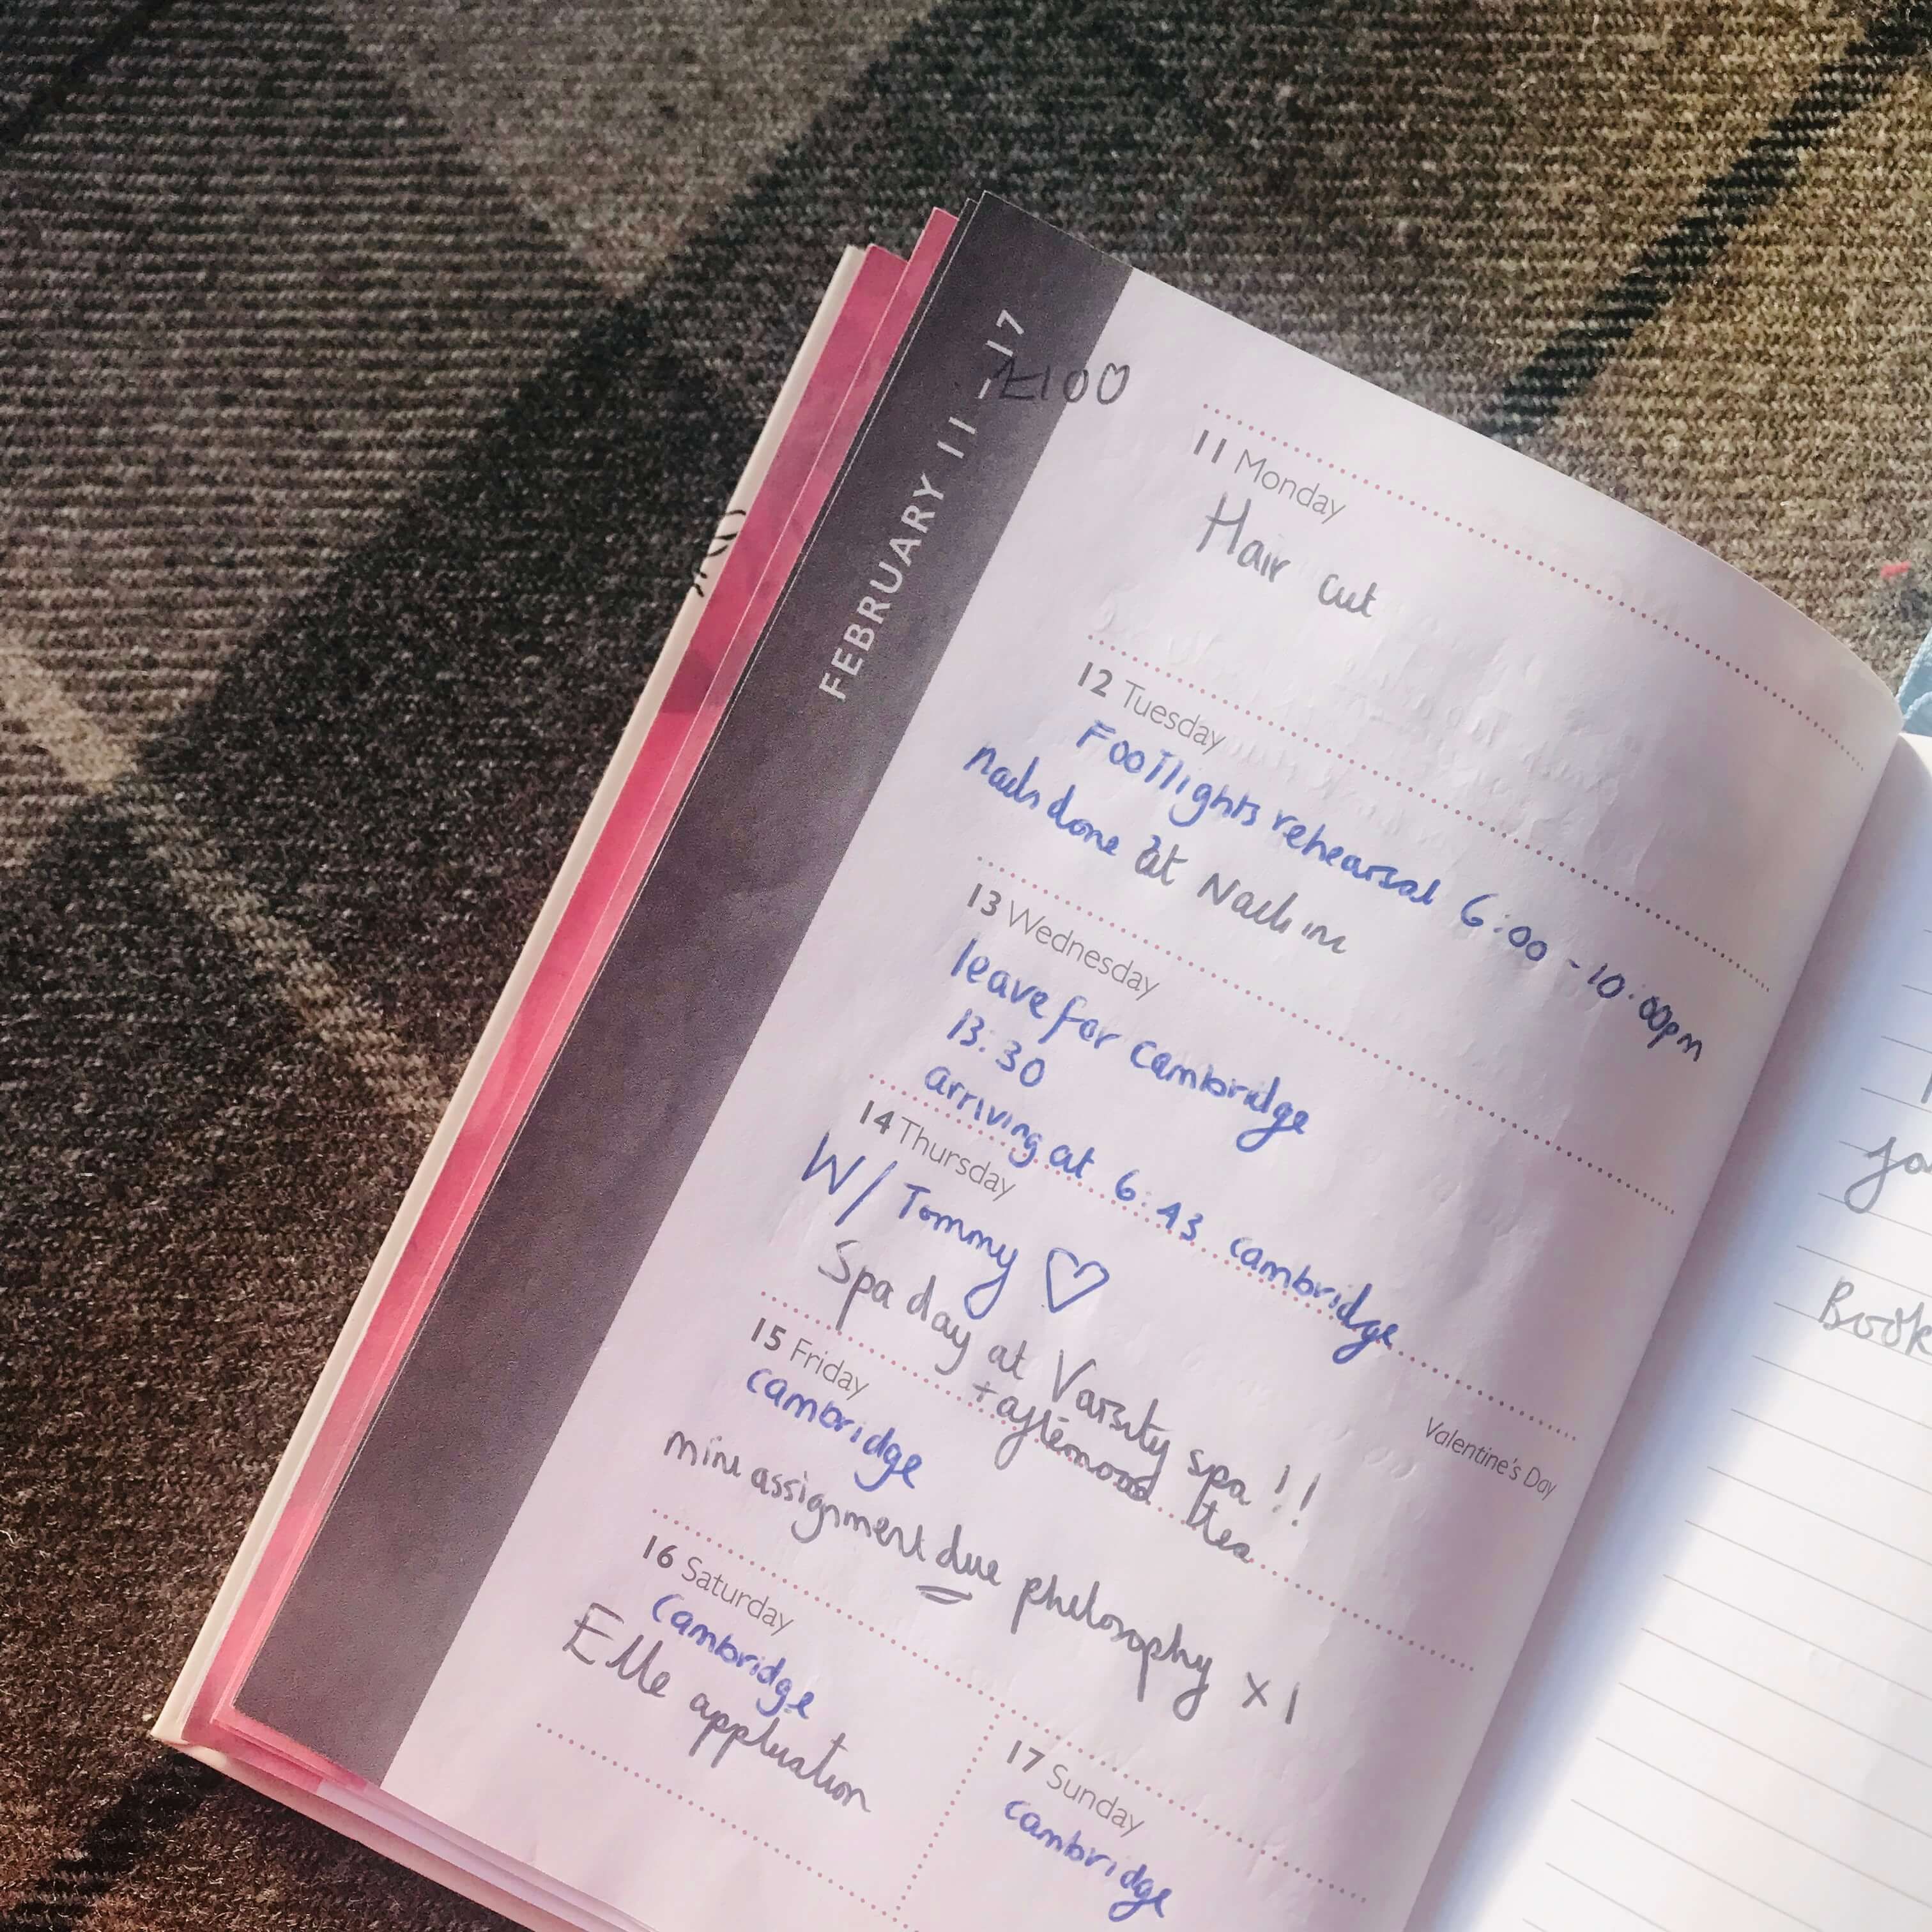 FEBRUARY 11 - 17
£100
11 Monday
Hair cut
12 Tuesday
Footlights rehearsal 6:00 - 10:00pm
nails done at
13 Wednesday
leave for cambridge
13:30
arriving at 6:43 cambridge
14 Thursday
Valentine's Day
W/ Tommy ♡
Spa day at Varsity spa !!
+ afternood tea
15 Friday
cambridge
mini assignment due philosophy x1
16 Saturday
cambridge
Elle application
17 Sunday
cambridge
Book